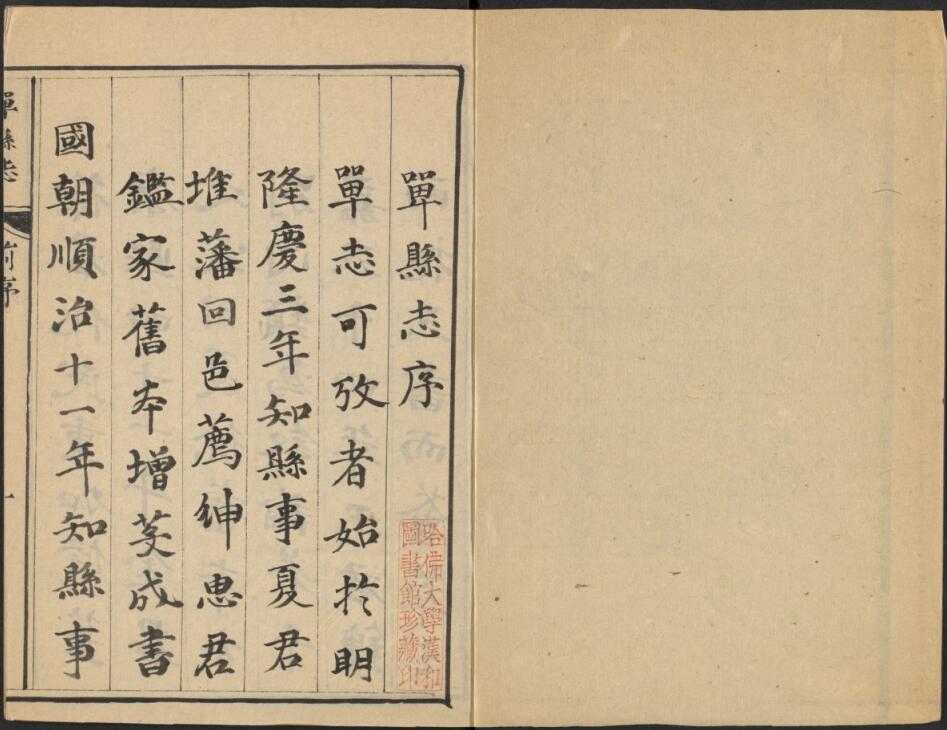 單縣志序
單志可攷者始於明
隆慶三年知縣事夏君
維藩回邑薦紳惠君
鑑家舊本增芟成書
國朝順治十一年知縣事
單縣志
前序
一
哈佛大學漢和
圖書館珍藏印